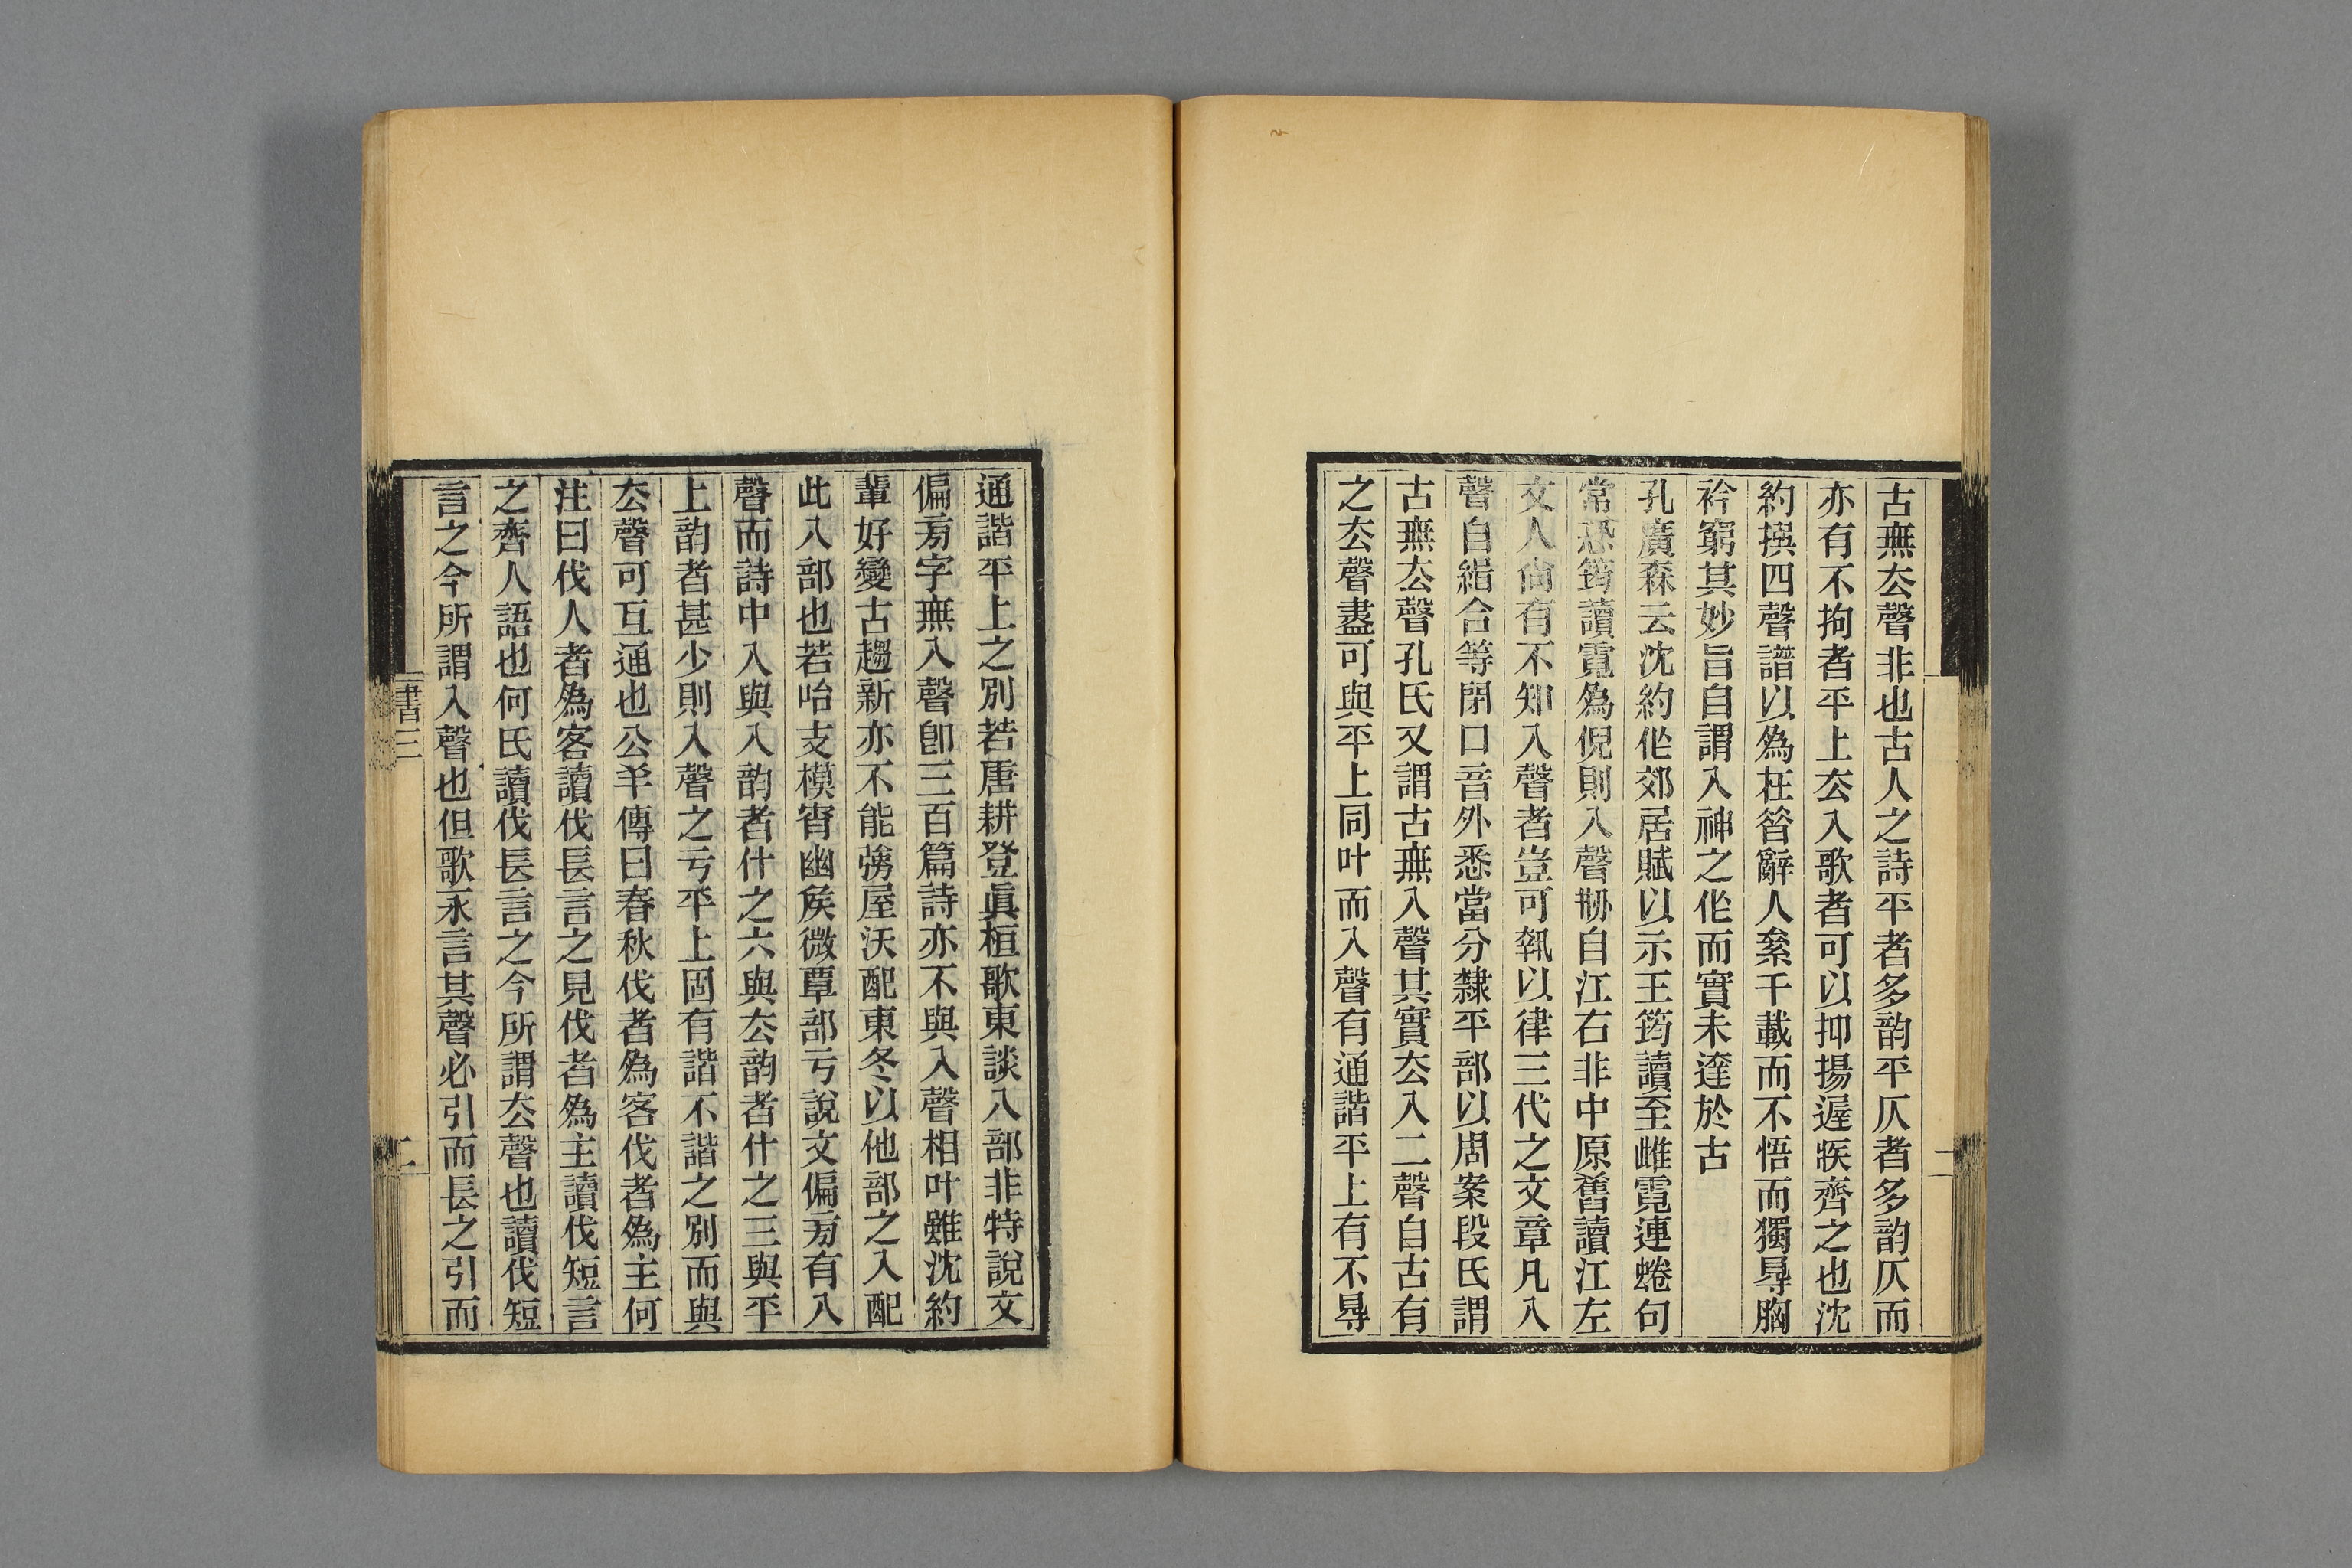 古無厺聲非也古人之詩平者多韵平仄者多韵仄而
亦有不拘者平上厺入歌者可以抑揚遟疾齊之也沈
約撰四聲譜以爲在昝辭人絫千載而不悟而獨㝵胸
衿窮其妙旨自謂入神之作而實未達於古
孔廣森云沈約作郊居賦以示王筠讀至雌霓連蜷句
常恐筠讀霓爲倪則入聲刱自江右非中原舊讀江左
文人尙有不知入聲者豈可執以律三代之文章凡入
聲自緝合等閉口音外悉當分隸平部以周案段氏謂
古無厺聲孔氏又謂古無入聲其實厺入二聲自古有
之厺聲盡可與平上同叶而入聲有通諧平上有不㝵
通諧平上之別若唐耕登眞桓歌東談八部非特說文
偏㫄字無入聲卽三百篇詩亦不與入聲相叶雖沈約
輩好變古趨新亦不能彊屋沃配東冬以他部之入配
此八部也若咍支模宵幽矦微覃部亏說文偏㫄有入
聲而詩中入與入韵者什之六與厺韵者什之三與平
上韵者甚少則入聲之亏平上固有諧不諧之別而與
厺聲可互通也公羊傳曰春秋伐者爲客伐者爲主何
注曰伐人者爲客讀伐長言之見伐者爲主讀伐短言
之齊人語也何氏讀伐長言之今所謂厺聲也讀伐短
言之今所謂入聲也但歌永言其聲必引而長之引而
書三
二